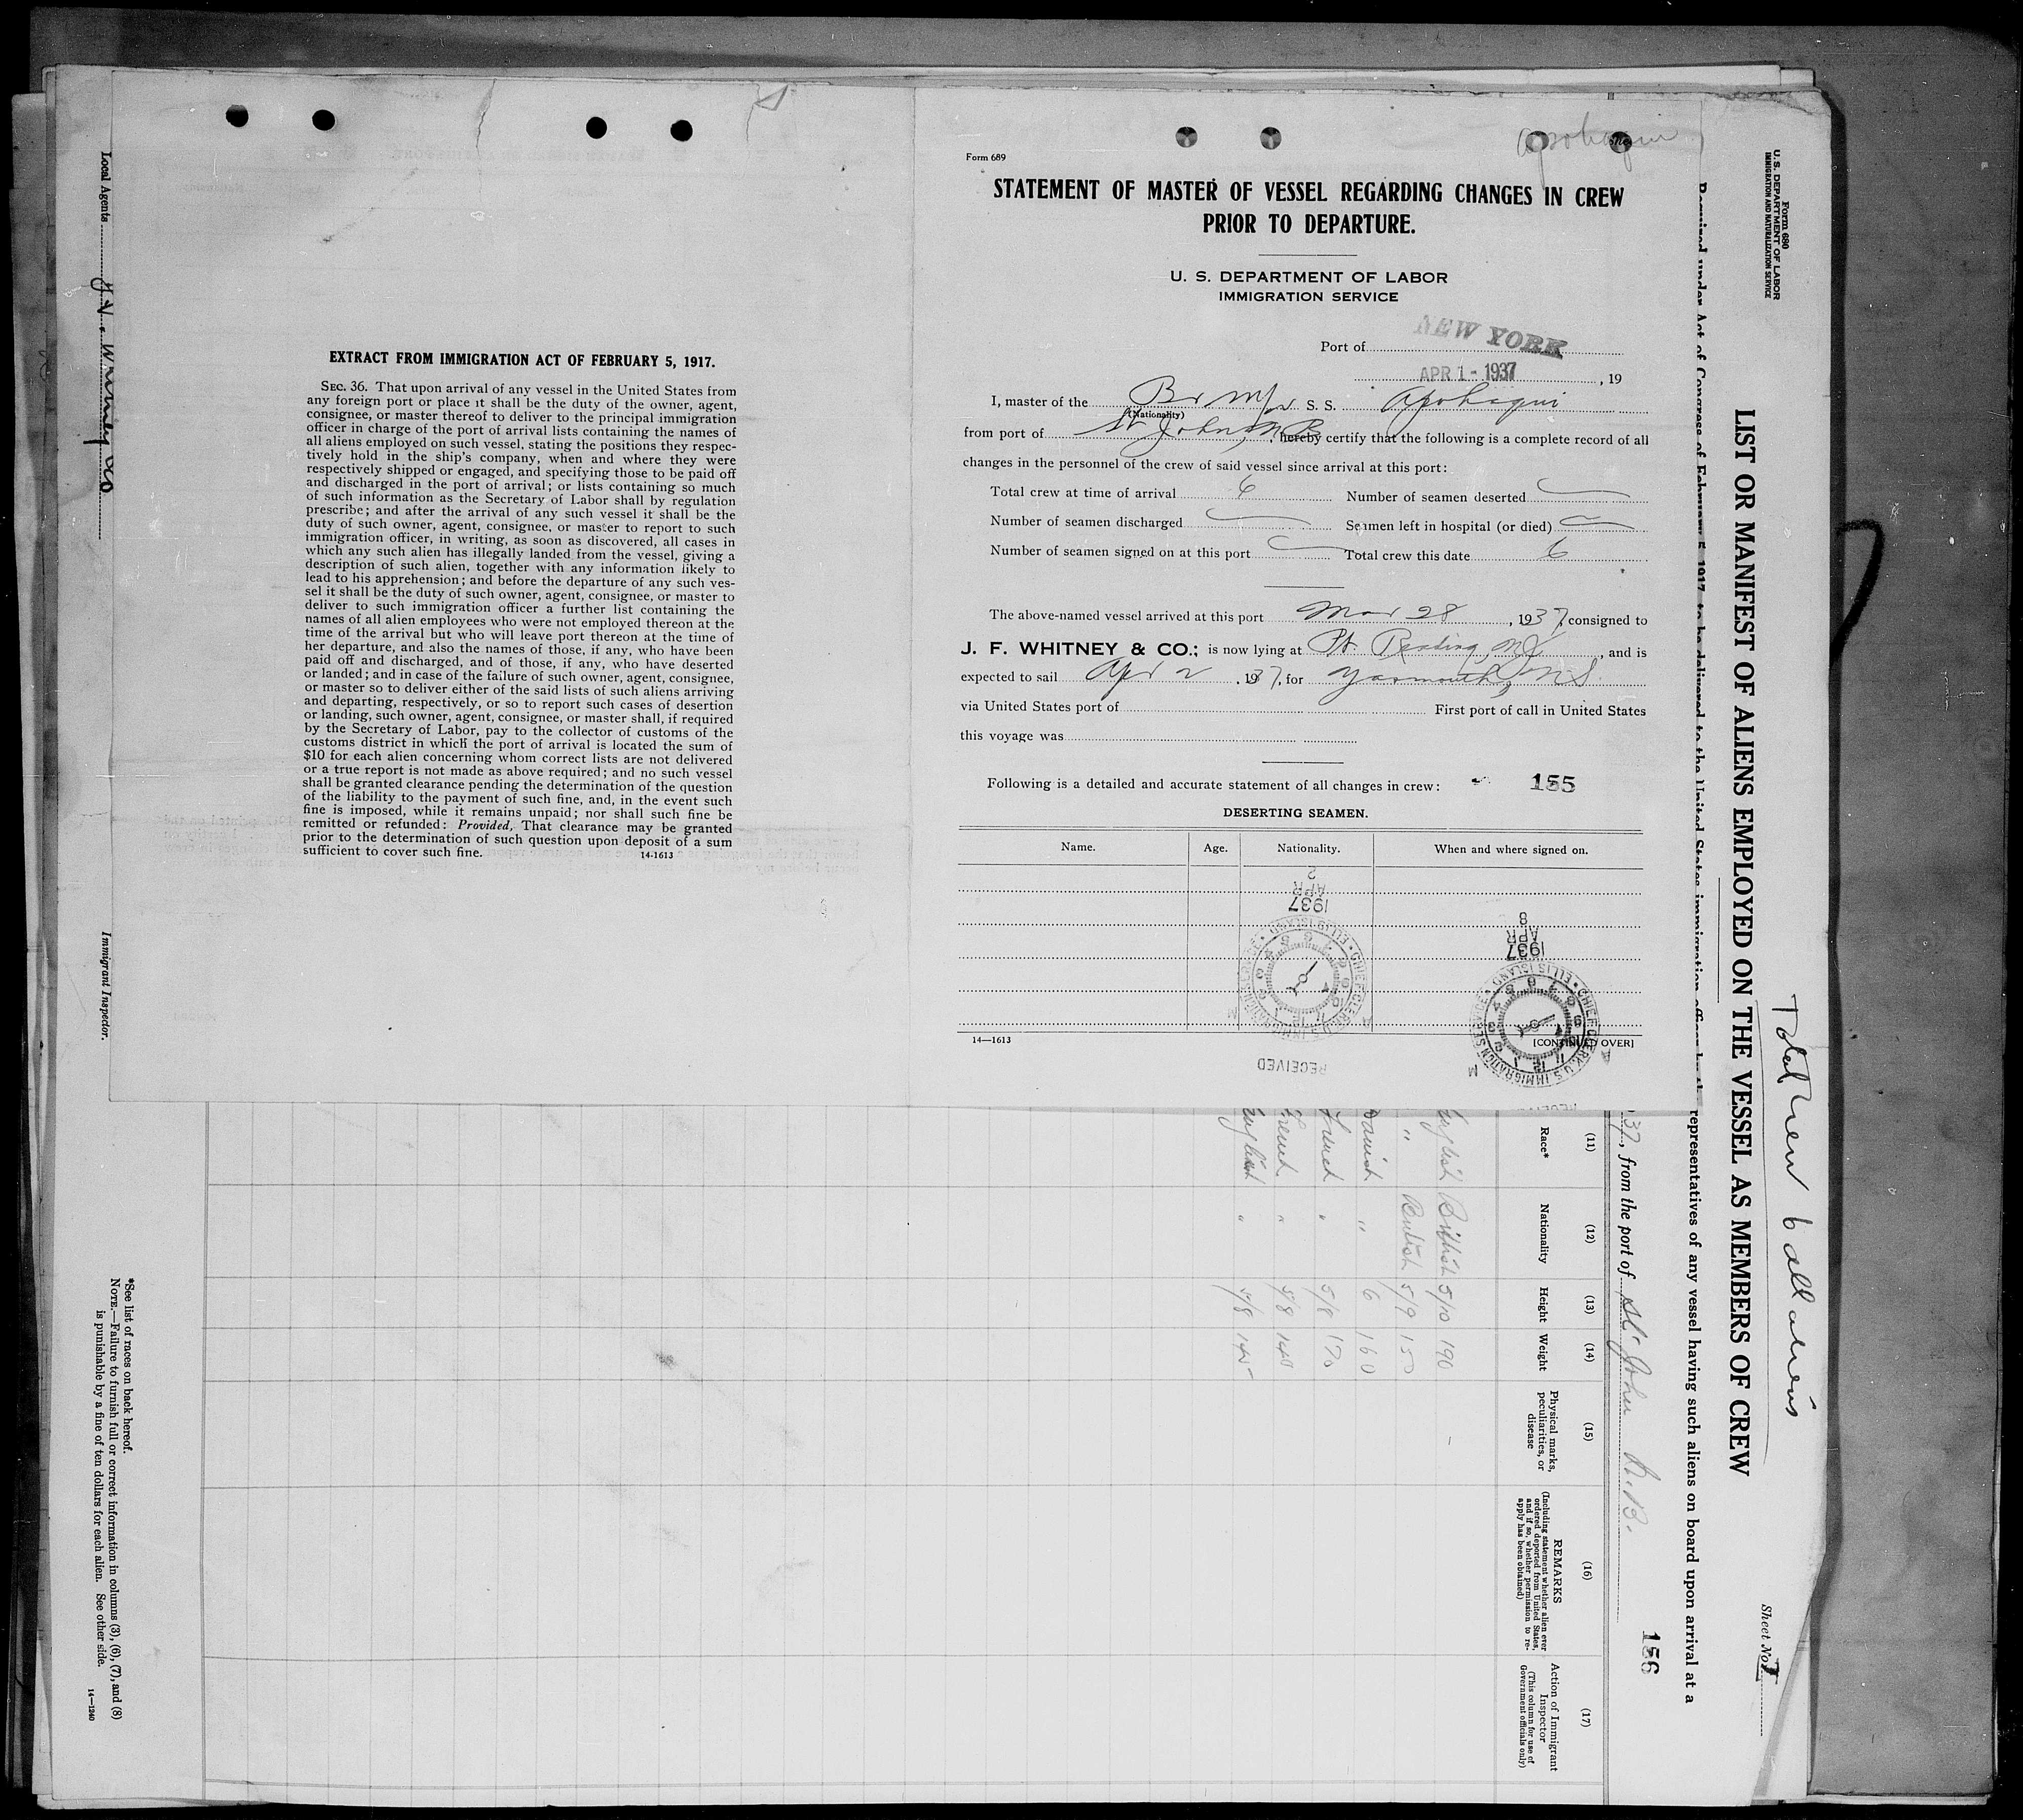 Form 689
Apohaqui
STATEMENT OF MASTER OF VESSEL REGARDING CHANGES IN CREW
PRIOR TO DEPARTURE.
U. S. DEPARTMENT OF LABOR
IMMIGRATION SERVICE
Port of NEW YORK
APR 1 - 1937, 19
I, master of the Br M/V S. S. Apohaqui
(Nationality)
from port of St John, N B, hereby certify that the following is a complete record of all
changes in the personnel of the crew of said vessel since arrival at this port:
Total crew at time of arrival 6 Number of seamen deserted —
Number of seamen discharged — Seamen left in hospital (or died) —
Number of seamen signed on at this port — Total crew this date 6
The above-named vessel arrived at this port Mar 28, 1937, consigned to
J. F. WHITNEY & CO.; is now lying at Pt. Reading, NJ, and is
expected to sail Apr 2, 1937, for Yarmouth, N S.
via United States port of First port of call in United States
this voyage was
Following is a detailed and accurate statement of all changes in crew: 155
DESERTING SEAMEN.
Name. Age. Nationality. When and where signed on.
1937 APR 2
1937 APR 8
CHIEF CLERK, U.S. IMMIGRATION SERVICE • ELLIS ISLAND •
CHIEF CLERK, U.S. IMMIGRATION SERVICE • ELLIS ISLAND •
RECEIVED
14—1613 [CONTINUED OVER]
EXTRACT FROM IMMIGRATION ACT OF FEBRUARY 5, 1917.
SEC. 36. That upon arrival of any vessel in the United States from
any foreign port or place it shall be the duty of the owner, agent,
consignee, or master thereof to deliver to the principal immigration
officer in charge of the port of arrival lists containing the names of
all aliens employed on such vessel, stating the positions they respec-
tively hold in the ship's company, when and where they were
respectively shipped or engaged, and specifying those to be paid off
and discharged in the port of arrival; or lists containing so much
of such information as the Secretary of Labor shall by regulation
prescribe; and after the arrival of any such vessel it shall be the
duty of such owner, agent, consignee, or master to report to such
immigration officer, in writing, as soon as discovered, all cases in
which any such alien has illegally landed from the vessel, giving a
description of such alien, together with any information likely to
lead to his apprehension; and before the departure of any such ves-
sel it shall be the duty of such owner, agent, consignee, or master to
deliver to such immigration officer a further list containing the
names of all alien employees who were not employed thereon at the
time of the arrival but who will leave port thereon at the time of
her departure, and also the names of those, if any, who have been
paid off and discharged, and of those, if any, who have deserted
or landed; and in case of the failure of such owner, agent, consignee,
or master so to deliver either of the said lists of such aliens arriving
and departing, respectively, or so to report such cases of desertion
or landing, such owner, agent, consignee, or master shall, if required
by the Secretary of Labor, pay to the collector of customs of the
customs district in which the port of arrival is located the sum of
$10 for each alien concerning whom correct lists are not delivered
or a true report is not made as above required; and no such vessel
shall be granted clearance pending the determination of the question
of the liability to the payment of such fine, and, in the event such
fine is imposed, while it remains unpaid; nor shall such fine be
remitted or refunded: Provided, That clearance may be granted
prior to the determination of such question upon deposit of a sum
sufficient to cover such fine. 14-1613
Form 680
U. S. DEPARTMENT OF LABOR
IMMIGRATION AND NATURALIZATION SERVICE
Total Crew 6 all aliens
Sheet No. 1
LIST OR MANIFEST OF ALIENS EMPLOYED ON THE VESSEL AS MEMBERS OF CREW
Required under Act of Congress of February 5, 1917, to be delivered to the United States immigration officer by the representatives of any vessel having such aliens on board upon arrival at a
37, from the port of St John N.B. 156
(11) (12) (13) (14) (15) (16) (17)
Race* Nationality Height Weight Physical marks, peculiarities, or disease REMARKS (Including statement whether alien ever ordered deported from United States, and if so, whether permission to re-apply has been obtained) Action of Immigrant Inspector (This column for use of Government officials only)
English British 5/10 190 -
" British 5/9 150
Danish " 6 160
French " 5/8 170
French " 5/8 140
English " 5/8 145
*See list of races on back hereof.
NOTE.—Failure to furnish full or correct information in columns (3), (6), (7), and (8)
is punishable by a fine of ten dollars for each alien. See other side.
14—1240
Local Agents J. F. Whitney & Co
Immigrant Inspector.